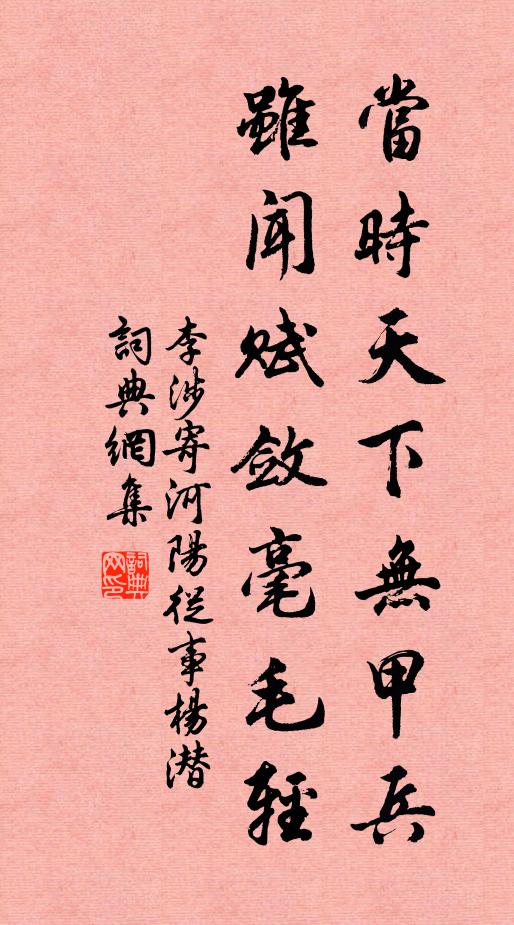 當時天下無甲兵
雖聞賦斂毫毛輕
李涉寄河陽從事楊潛
詞典網集
詞典网印